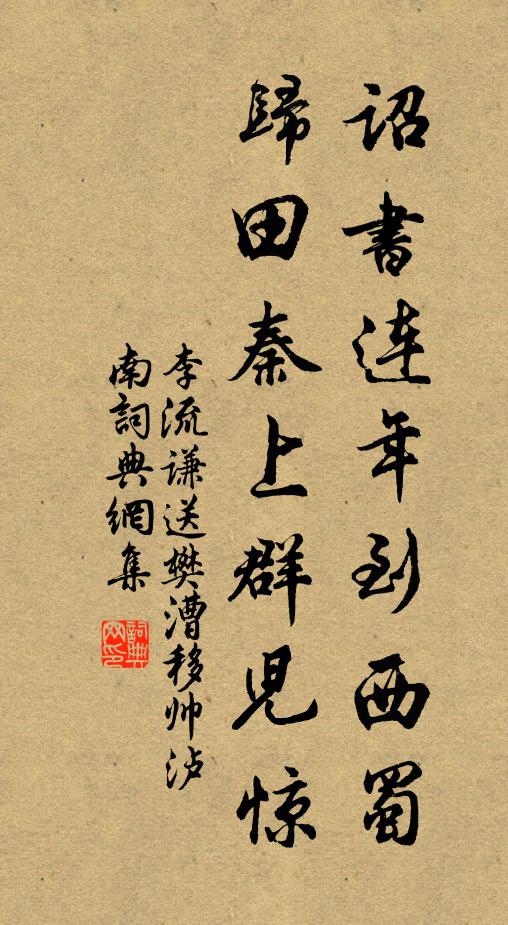 詔書連年到西蜀
歸田秦上群児惊
李流谦送樊漕移帅泸
南詞典網集
詞典
网印